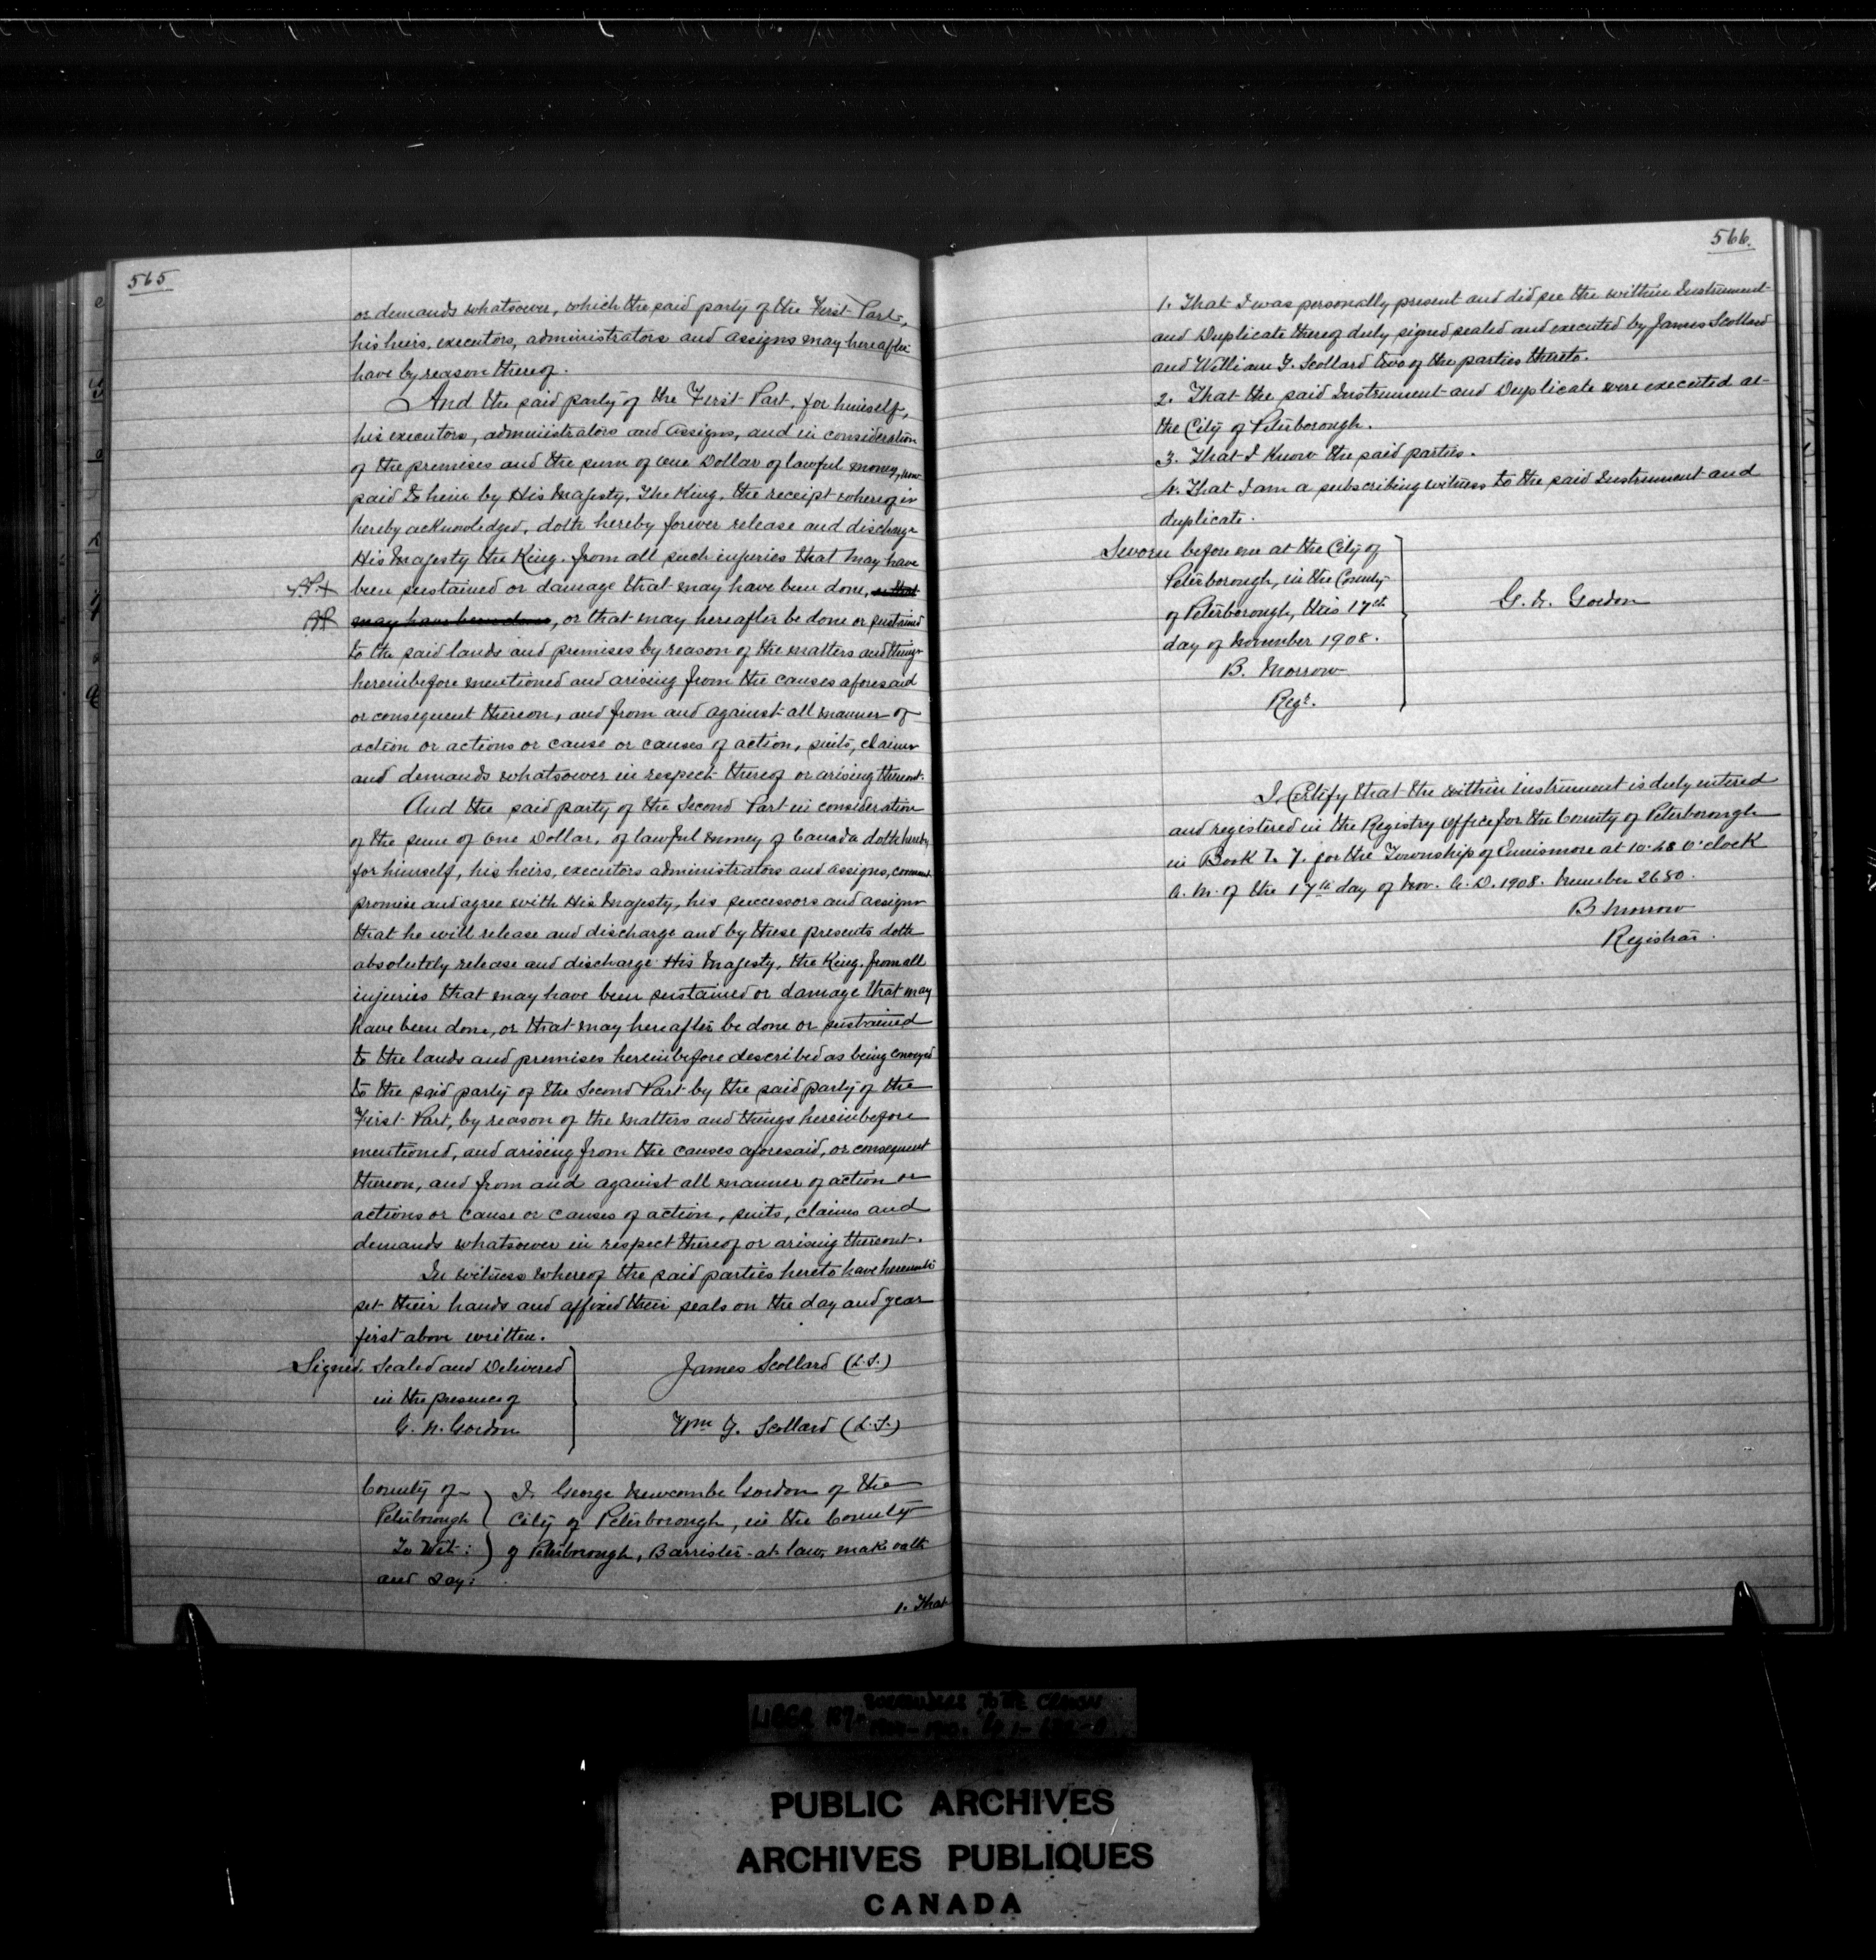 565
or demands whatsoever, which the said party of the First Part,
his heirs, executors, administrators and assigns may hereafter
have by reason thereof.
And the said party of the First Part, for himself,
his executors, administrators and assigns, and in consideration
of the premises and the sum of One Dollar of lawful money, now
paid to him by His Majesty, The King, the receipt whereof is
hereby acknowledged, doth hereby forever release and discharge
His Majesty the King, from all such injuries that may have
been sustained or damage that may have been done, or that
may have been done, or that may hereafter be done or sustained
to the said lands and premises by reason of the matters and things
hereinbefore mentioned and arising from the causes aforesaid
or consequent thereon, and from and against all manner of
action or actions or cause or causes of action, suits, claims
and demands whatsoever in respect thereof or arising thereout.
And the said party of the Second Part in consideration
of the sum of One Dollar, of lawful money of Canada doth hereby
for himself, his heirs, executors administrators and assigns, covenant
promise and agree with His Majesty, his successors and assigns
that he will release and discharge and by these presents doth
absolutely release and discharge His Majesty, the King, from all
injuries that may have been sustained or damage that may
have been done, or that may hereafter be done or sustained
to the lands and premises hereinbefore described as being conveyed
to the said party of the Second Part by the said party of the
First Part, by reason of the matters and things hereinbefore
mentioned, and arising from the causes aforesaid, or consequent
thereon, and from and against all manner of action or
actions or cause or causes of action, suits, claims and
demands whatsoever in respect thereof or arising thereout.
In witness whereof the said parties hereto have hereunto
set their hands and affixed their seals on the day and year
first above written.
Signed, Sealed and Delivered
in the presence of
G. N. Gordon
James Scollard (L.S.)
Wm G. Scollard (L.S.)
County of
Peterborough
To Wit:
I, George Newcombe Gordon of the
City of Peterborough, in the County
of Peterborough, Barrister-at-law, make oath
and say:
1. That
566.
1. That I was personally present and did see the within Instrument
and Duplicate thereof duly signed sealed and executed by James Scollard
and William G. Scollard two of the parties thereto.
2. That the said Instrument and Duplicate were executed at
the City of Peterborough.
3. That I know the said parties.
4. That I am a subscribing witness to the said Instrument and
duplicate.
Sworn before me at the City of
Peterborough, in the County
of Peterborough, this 17th
day of November 1908.
B. Morrow
Regr.
G. N. Gordon
I, Certify that the within instrument is duly entered
and registered in the Registry Office for the County of Peterborough
in Book for the Township of Ennismore at 10.48 O'clock
A. M. of the 17th day of Nov. A. D. 1908. Number 2680.
B Morrow
Registrar.
PUBLIC ARCHIVES
ARCHIVES PUBLIQUES
CANADA